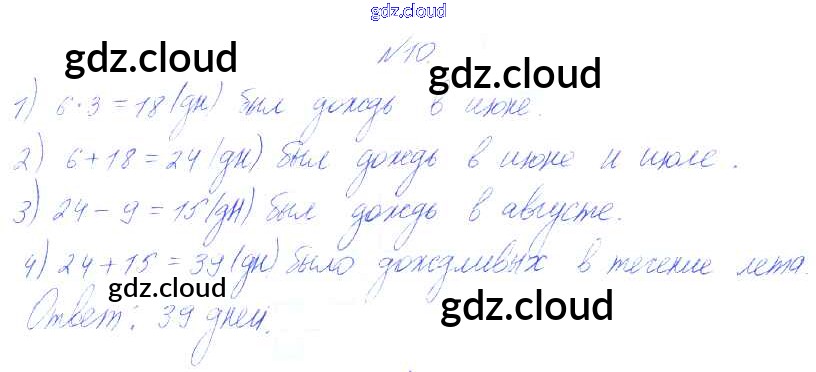 gdz.cloud
№10.
gdz.cloud
gdz.cloud
1) 6·3=18(дн) был дождь в июне.
2) 6+18=24(дн) был дождь в июне и июле.
3) 24-9=15(дн) был дождь в августе.
4) 24+15=39(дн) было дождливых в течение лета.
gdz.cloud
gdz.cloud
Ответ: 39 дней.